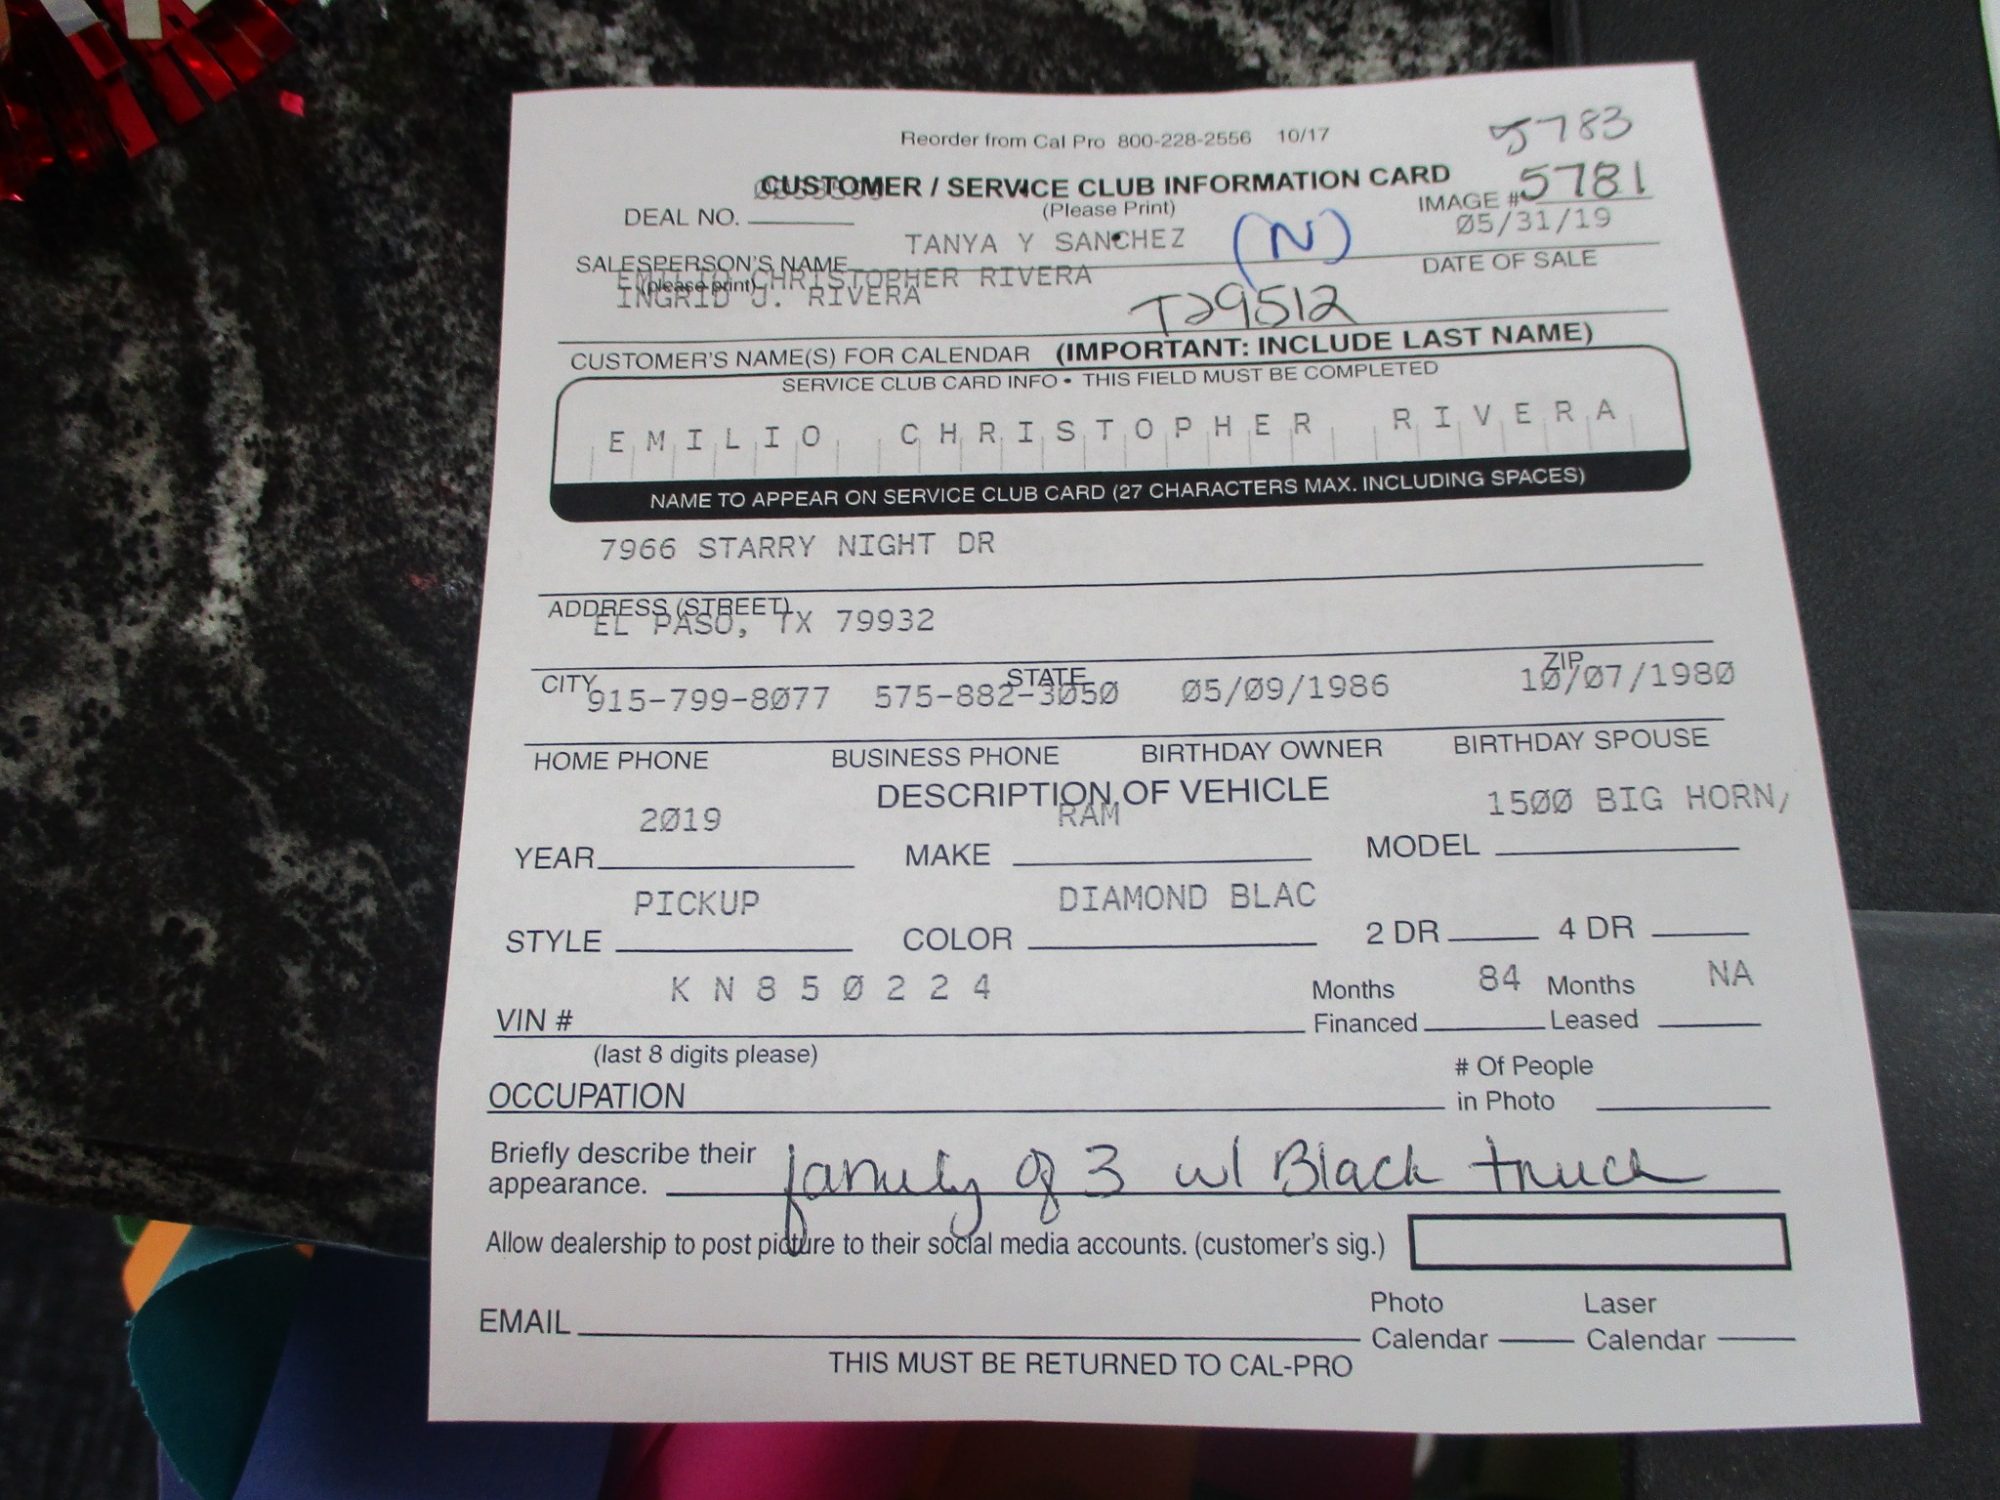 Reorder from Cal Pro 800-228-2556 10/17
5783
CUSTOMER / SERVICE CLUB INFORMATION CARD
DEAL NO.
(Please Print)
IMAGE # 5781
TANYA Y SANCHEZ (N) 05/31/19
SALESPERSON'S NAME DATE OF SALE
(please print)
EMILIO CHRISTOPHER RIVERA
INGRID J. RIVERA
T29512
CUSTOMER'S NAME(S) FOR CALENDAR (IMPORTANT: INCLUDE LAST NAME)
SERVICE CLUB CARD INFO • THIS FIELD MUST BE COMPLETED
EMILIO CHRISTOPHER RIVERA
NAME TO APPEAR ON SERVICE CLUB CARD (27 CHARACTERS MAX. INCLUDING SPACES)
7966 STARRY NIGHT DR
ADDRESS (STREET)
EL PASO, TX 79932
CITY STATE ZIP
915-799-8077 575-882-3050 05/09/1986 10/07/1980
HOME PHONE BUSINESS PHONE BIRTHDAY OWNER BIRTHDAY SPOUSE
DESCRIPTION OF VEHICLE
2019 RAM 1500 BIG HORN/
YEAR MAKE MODEL
PICKUP DIAMOND BLAC
STYLE COLOR 2 DR 4 DR
KN850224 84 NA
VIN # Months Financed Months Leased
(last 8 digits please)
OCCUPATION # Of People in Photo
Briefly describe their
appearance. family of 3 w/ Black truck
Allow dealership to post picture to their social media accounts. (customer's sig.)
EMAIL Photo Calendar Laser Calendar
THIS MUST BE RETURNED TO CAL-PRO